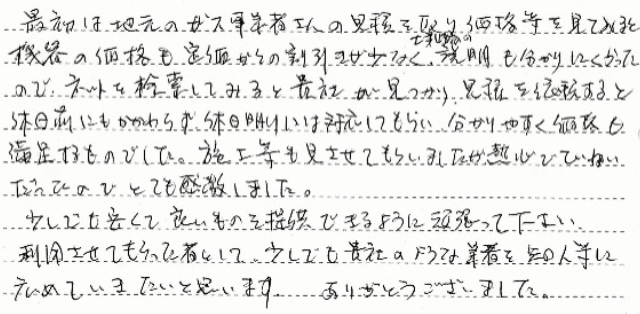 最初は地元のガス事業者さんの見積を取り価格等を見てみると
機器の価格も定価からの割引きが少なく、説明も分かりにくかった
ので、ネットを検索してみると貴社が見つかり、見積を依頼すると
休日前にもかかわらず休日明けには対応してもらい、分かりやすく価格も
満足するものでした。施工等も見させてもらいましたが熱心でていねい
だったのでとても感激しました。
少しでも安くて良いものを提供できるように頑張って下さい。
利用させてもらった者として、少しでも貴社のような業者を知人等に
広めていきたいと思います。 ありがとうございました。